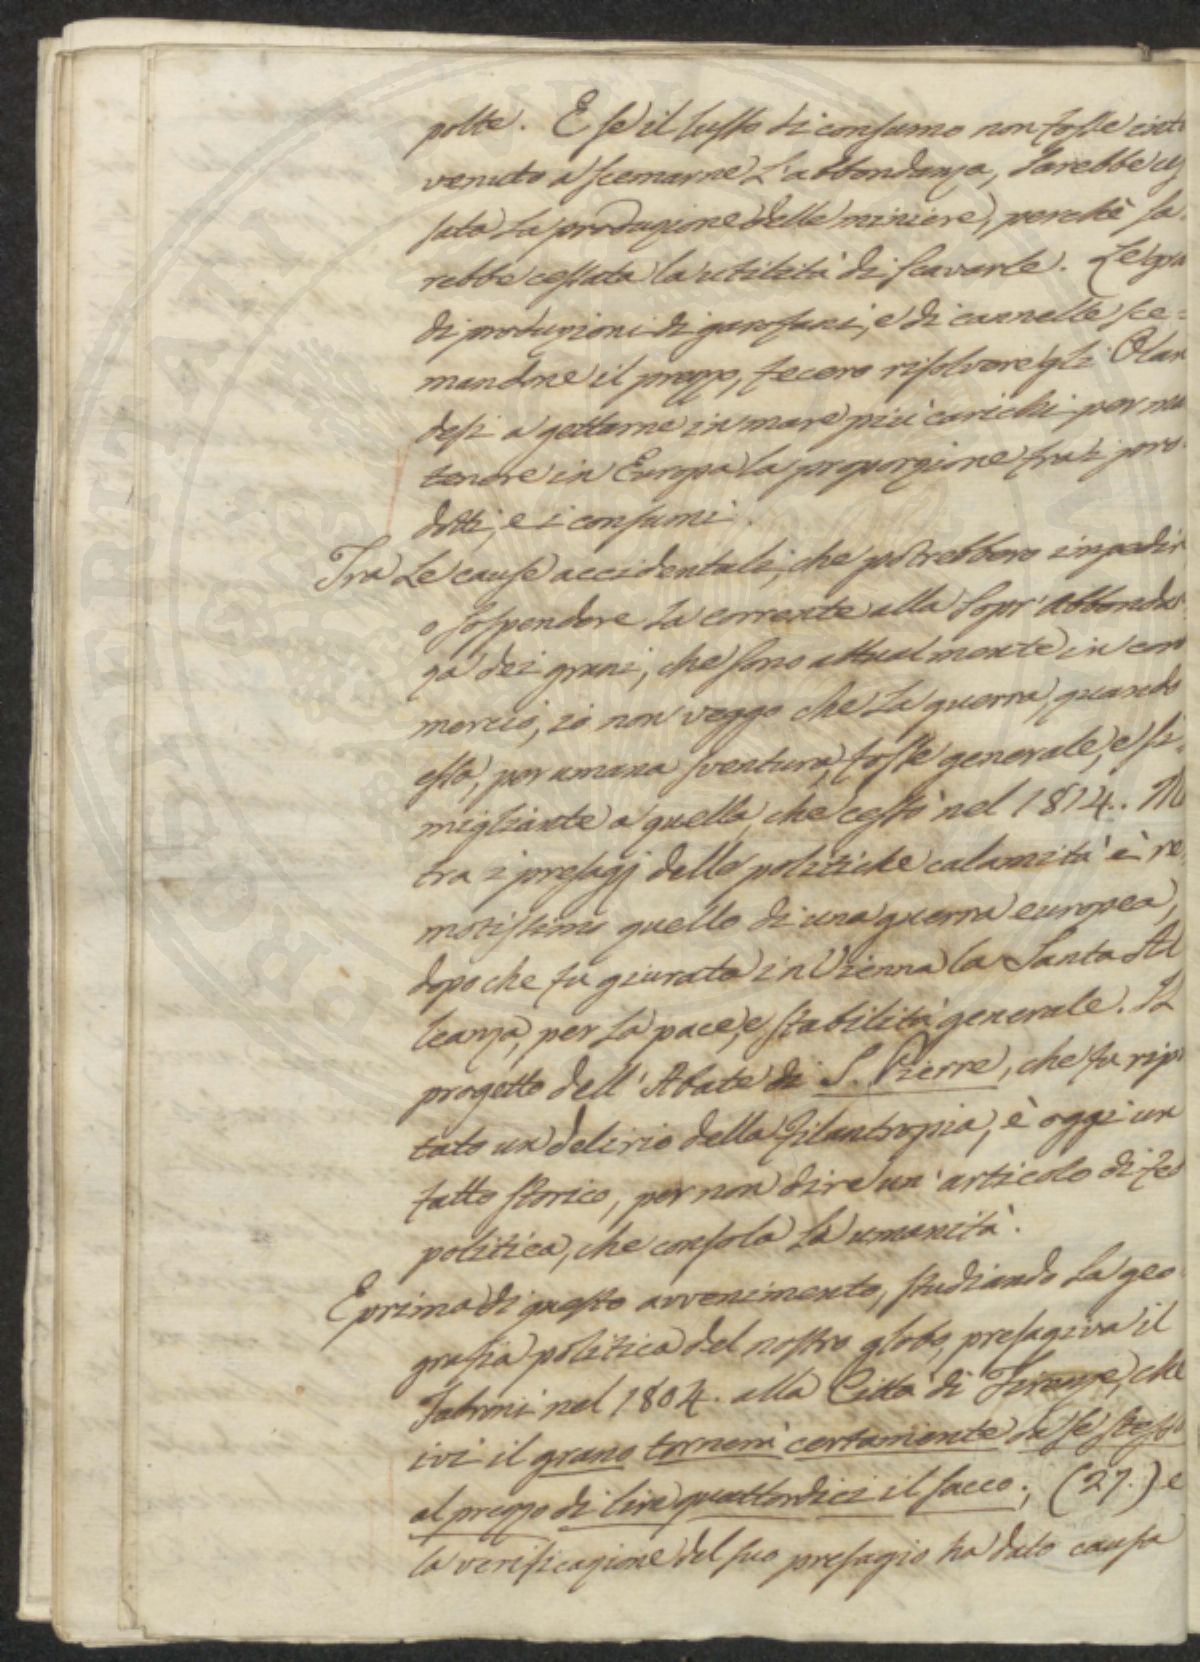 polte. E se il lusso di consumo non fosse inte
venuto a scemarne l'abbondanza, sarebbe ces
sata la produzione delle miniere, perchè sa-
rebbe cessata la utilità di scavarle. Le gra
di produzioni di garofani, e di cannelle sce=
mandone il prezzo, fecero risolvere gli Olan
desi a gettarne in mare più carichi per ma
tenere in Europa la proporzione fra i pro-
dotti, e i consumi.
Tra le cause accidentali, che potrebbero impedir
o sospendere la corrente alla sopr'abbondan
za dei grani, che sono attualmente in com
mercio, io non veggo che la guerra, quando
essa, per umana sventura, fosse generale, e si=
migliante a quella, che cessò nel 1814. M
tra i presagj delle politiche calamità è re
motissimo quello di una guerra europea,
dopo che fu giurata in Vienna la Santa Al
leanza, per la pace, e stabilità generale. Il
progetto dell'Abate di S. Pierre, che fu ripu
tato un delirio della filantropia, è oggi un
fatto storico, per non dire un'articolo di fed
politica, che consola la umanità.
E prima di questo avvenimento, studiando la geo
grafia politica del nostro globo, presagiva il
Fabroni nel 1804. alla Città di Firenze, che
ivi il grano tornerà certamente da se stesso
al prezzo di lire quattordici il sacco; (27.) e
la verificazione del suo presagio ha dato causa
PROSPERITATI PUBLICAE